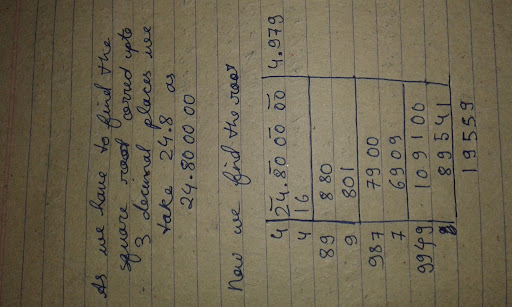 As we have to find the
square root corred upto
3 decimal places we
take 24.8 as
24.80 00 00
Now we find the root
4 24.80 00 00 4.979
4 16
89 880
9 801
987 7900
7 6909
9949 109100
89541
19559